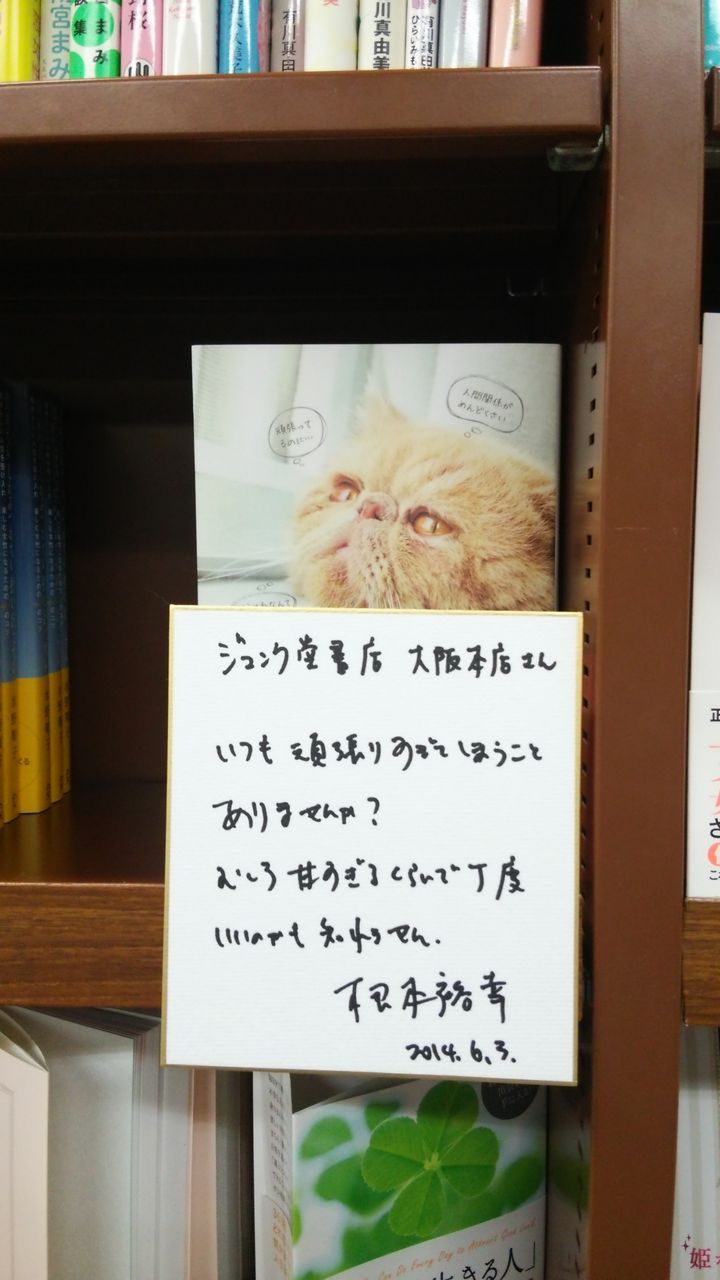 宮まみ
まみ
集
有川真由
川真由美
有川真由
ひらいみも
頑張って
るのに…
人間関係が
めんどくさい
なんて
ジュンク堂書店 大阪本店さん
いつも頑張りすぎてしまうこと
ありませんか？
むしろ甘すぎるくらいで丁度
いいのかも知れません.
根本裕幸
2014.6.3.
Can Do Every Day to Attract Good Luck
きる人」
正
さ
姫